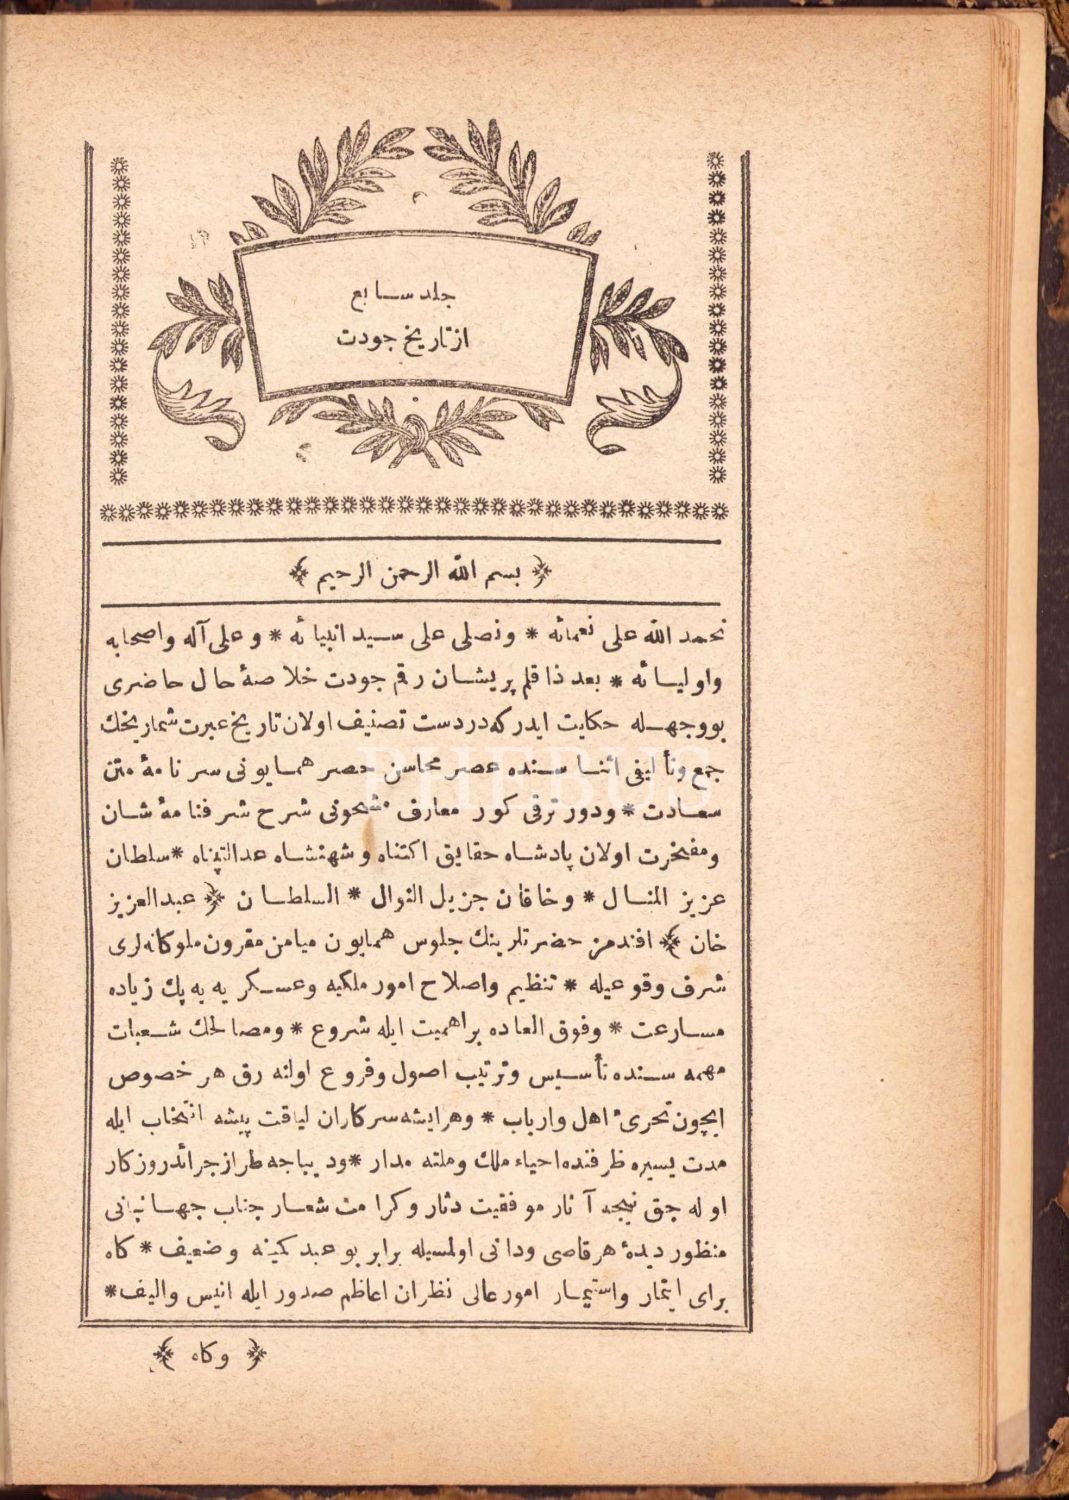 جلد سابع
از تاريخ جودت
﴿ بسم الله الرحمن الرحيم ﴾
نحمد الله على نعمائه * ونصلى على سيد انبيائه * وعلى آله واصحابه
واوليائه * بعد ذا قلم پريشان رقم جودت خلاصۀ حال حاضرى
بووجهله حكايت ايدركه دردست تصنيف اولان تاريخ عبرت شماريخك
جمع وتأليفى اثنا سنده عصر محاسن حصر همايونى سر نامۀ متن
سعادت * ودور ترقى كور معارف مشحونى شرح شرفنامۀ شان
ومفخرت اولان پادشاه حقايق اكتناه وشهنشاه عدالتپناه * سلطان
عزيز المنال * وخاقان جزيل النوال * السلطان ﴿ عبدالعزيز
خان ﴾ افندمز حضرتلرينك جلوس همايون ميامن مقرون ملوكانه لرى
شرف وقوعيله * تنظيم واصلاح امور ملكيه وعسكريه يه پك زياده
مسارعت * وفوق العاده براهميت ايله شروع * ومصالحك شعبات
مهمه سنده تأسيس وترتيب اصول وفروع اولنه رق هر خصوص
ايچون تحرئ اهل وارباب * وهرايشه سركاران لياقت پيشه انتخاب ايله
مدت يسيره ظرفنده احياء ملك وملته مدار * وديباجه طراز جرائد روزكار
اوله جق نيجه آثار موفقيت دثار وكرامت شعار جناب جهانبانى
منظور ديدۀ هرقاصى ودانى اولمسيله برابر بو عبد كمينه وضعيف * كاه
براى ايتمار واستيمار امورعالى نظران اعاظم صدور ايله انيس واليف *
﴿ وكاه ﴾
PHEBUS